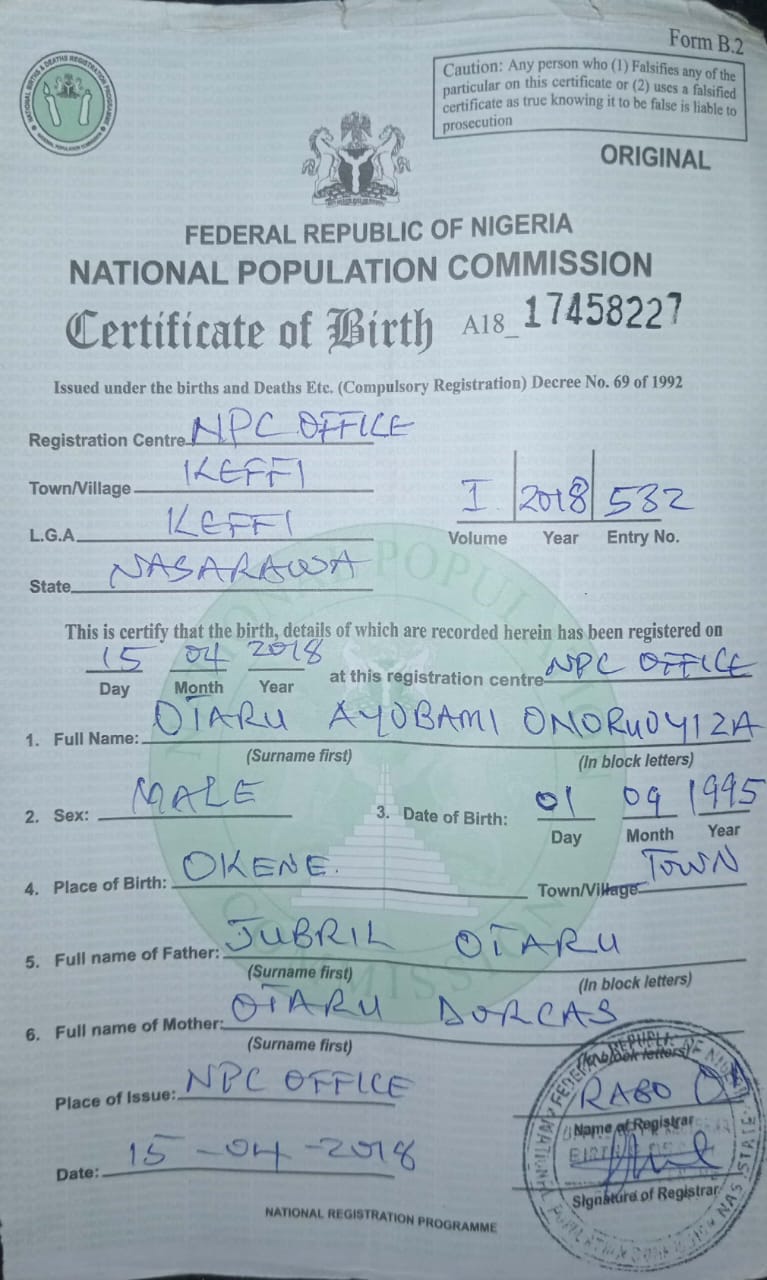 Form B.2
NATIONAL BIRTHS & DEATHS REGISTRATION PROGRAMME
NATIONAL POPULATION COMMISSION
Caution: Any person who (1) Falsifies any of the
particular on this certificate or (2) uses a falsified
certificate as true knowing it to be false is liable to
prosecution
ORIGINAL
FEDERAL REPUBLIC OF NIGERIA
NATIONAL POPULATION COMMISSION
Certificate of Birth A18_17458227
Issued under the births and Deaths Etc. (Compulsory Registration) Decree No. 69 of 1992
Registration Centre NPC OFFICE
Town/Village KEFFI
L.G.A KEFFI
State NASARAWA
I 2018 532
Volume Year Entry No.
This is certify that the birth, details of which are recorded herein has been registered on
15 04 2018 at this registration centre NPC OFFICE
Day Month Year
1. Full Name: OTARU AYOBAMI ONORUOYIZA
(Surname first) (In block letters)
2. Sex: MALE 3. Date of Birth: 01 09 1995
Day Month Year
4. Place of Birth: OKENE. Town/Village TOWN
5. Full name of Father: JUBRIL OTARU
(Surname first) (In block letters)
6. Full name of Mother: OTARU DORCAS
(Surname first) (In block letters)
Place of Issue: NPC OFFICE
RABO
Name of Registrar
Date: 15-04-2018
Signature of Registrar
NATIONAL REGISTRATION PROGRAMME
NATIONAL POPULATION COMMISSION